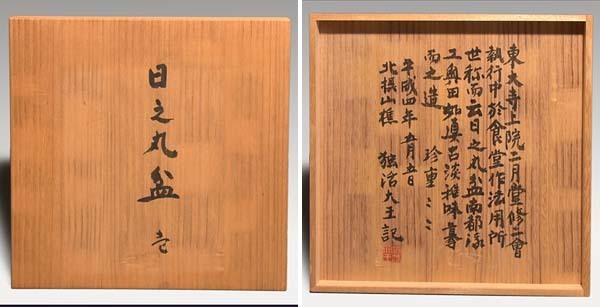 日之丸盆 壱
東大寺上院二月堂修二會
執行中於食堂作法用所
世称而云日之丸盆南都漆
工奥田如真古淡雅味募
而之造 珍重こ こ
平成四年五月五日
北摂山樵 独活大王記